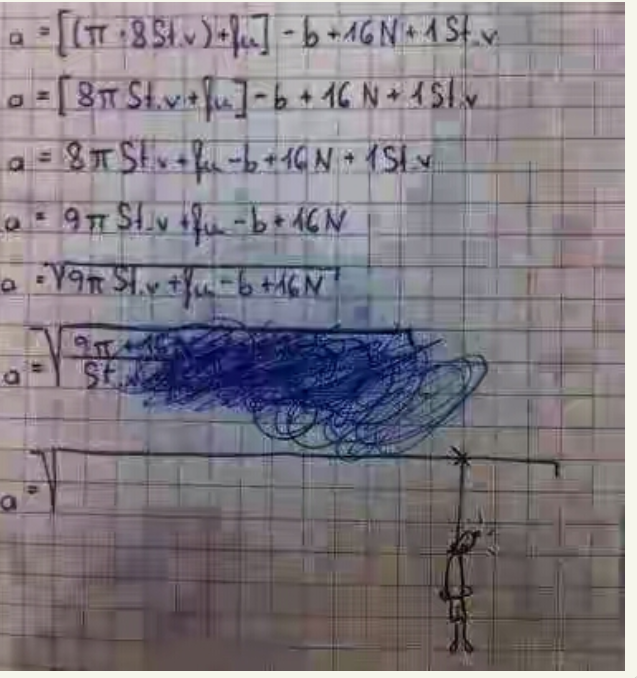 a = [(π · 8 St.v) + fμ] - b + 16 N + 1 St.v
a = [8π St.v + fμ] - b + 16 N + 1 St.v
a = 8π St.v + fμ - b + 16 N + 1 St.v
a = 9π St.v + fμ - b + 16 N
a = √9π St.v + fμ - b + 16 N
a = √9π + 16
St.v
a = √